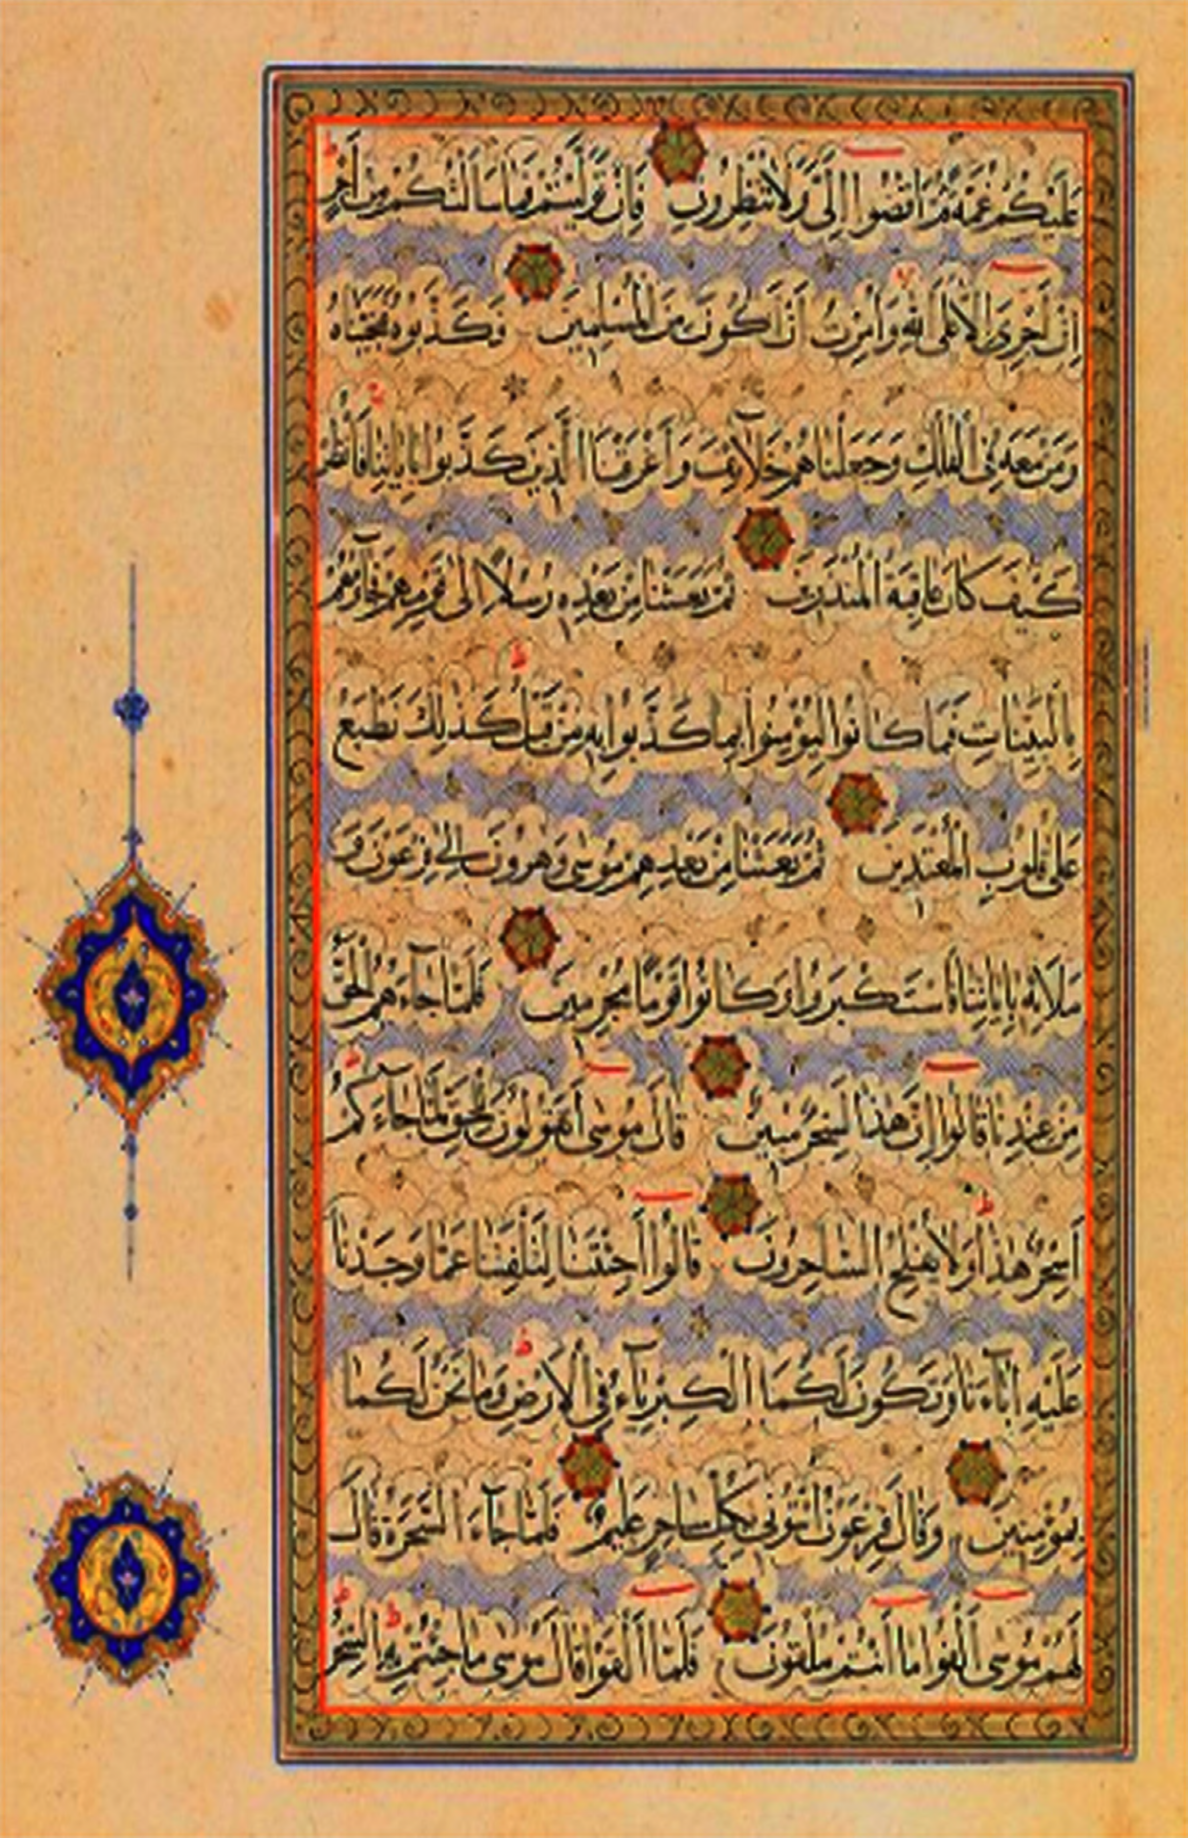 عَلَيْكُمْ غُمَّةً ثُمَّ اقْضُوا إِلَيَّ وَلَا تُنْظِرُونِ فَإِنْ تَوَلَّيْتُمْ فَمَا سَأَلْتُكُمْ مِنْ أَجْرٍ
إِنْ أَجْرِيَ إِلَّا عَلَى اللَّهِ وَأُمِرْتُ أَنْ أَكُونَ مِنَ الْمُسْلِمِينَ فَكَذَّبُوهُ فَنَجَّيْنَاهُ
وَمَنْ مَعَهُ فِي الْفُلْكِ وَجَعَلْنَاهُمْ خَلَائِفَ وَأَغْرَقْنَا الَّذِينَ كَذَّبُوا بِآيَاتِنَا فَانْظُرْ
كَيْفَ كَانَ عَاقِبَةُ الْمُنْذَرِينَ ثُمَّ بَعَثْنَا مِنْ بَعْدِهِ رُسُلًا إِلَى قَوْمِهِمْ فَجَاءُوهُمْ
بِالْبَيِّنَاتِ فَمَا كَانُوا لِيُؤْمِنُوا بِمَا كَذَّبُوا بِهِ مِنْ قَبْلُ كَذَلِكَ نَطْبَعُ
عَلَى قُلُوبِ الْمُعْتَدِينَ ثُمَّ بَعَثْنَا مِنْ بَعْدِهِمْ مُوسَى وَهَرُونَ إِلَى فِرْعَوْنَ وَ
مَلَائِهِ بِآيَاتِنَا فَاسْتَكْبَرُوا وَكَانُوا قَوْمًا مُجْرِمِينَ فَلَمَّا جَاءَهُمُ الْحَقُّ
مِنْ عِنْدِنَا قَالُوا إِنَّ هَذَا لَسِحْرٌ مُبِينٌ قَالَ مُوسَى أَتَقُولُونَ لِلْحَقِّ لَمَّا جَاءَكُمْ
أَسِحْرٌ هَذَا وَلَا يُفْلِحُ السَّاحِرُونَ قَالُوا أَجِئْتَنَا لِتَلْفِتَنَا عَمَّا وَجَدْنَا
عَلَيْهِ آبَاءَنَا وَتَكُونَ لَكُمَا الْكِبْرِيَاءُ فِي الْأَرْضِ وَمَا نَحْنُ لَكُمَا
بِمُؤْمِنِينَ وَقَالَ فِرْعَوْنُ ائْتُونِي بِكُلِّ سَاحِرٍ عَلِيمٍ فَلَمَّا جَاءَ السَّحَرَةُ قَالَ
لَهُمْ مُوسَى أَلْقُوا مَا أَنْتُمْ مُلْقُونَ فَلَمَّا أَلْقَوْا قَالَ مُوسَى مَا جِئْتُمْ بِهِ السِّحْرُ